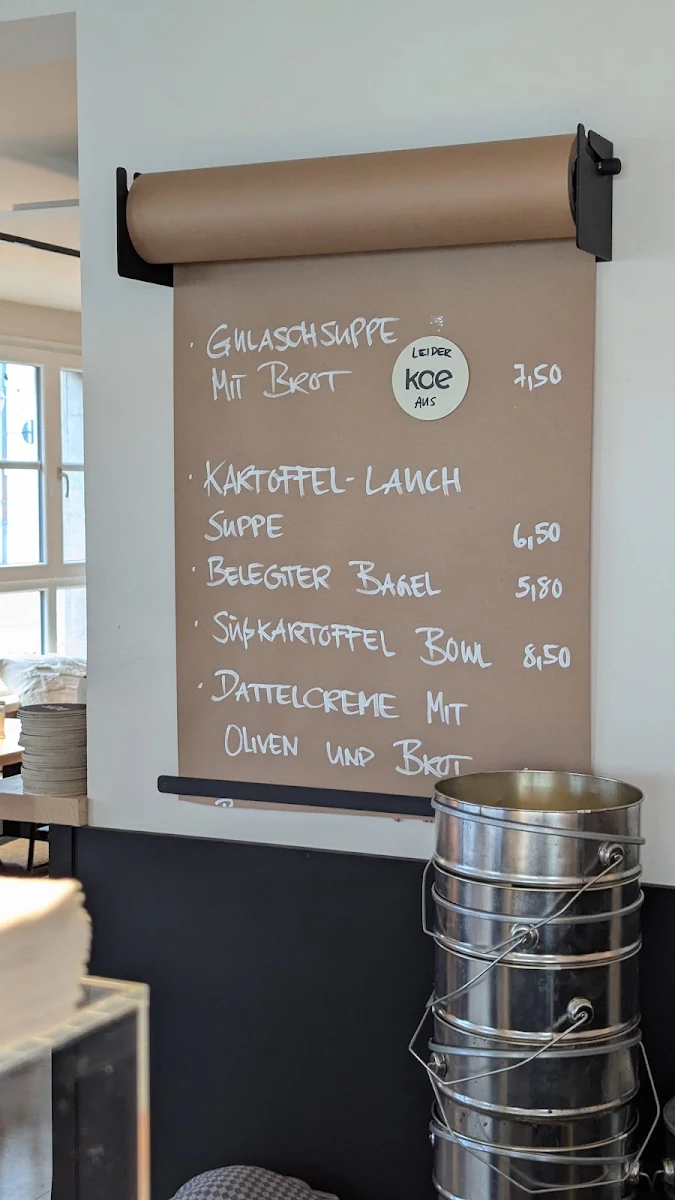 · GULASCHSUPPE
MIT BROT 7,50
LEIDER
koe
AUS
· KARTOFFEL-LAUCH
SUPPE 6,50
· BELEGTER BAGEL 5,80
· SÜßKARTOFFEL BOWL 8,50
· DATTELCREME MIT
OLIVEN UND BROT